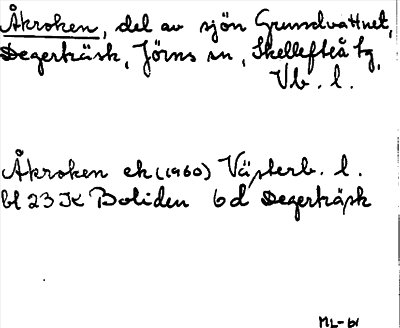 Åkroken, del av sjön Grundvattnet,
Degerträsk, Jörns sn, Skellefteå tg,
Vb. l.
Åkroken ek (1960) Västerb. l.
bl 23 K Boliden 6d Degerträsk
ML-61